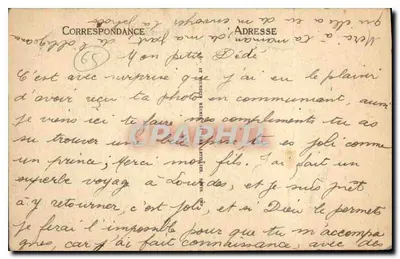 CORRESPONDANCE
ADRESSE
Merci à ta maman de ma part, de l'obligeance
qu'elle a eu de m'envoyer ta photo
59
Mon petit Dédé
C'est avec surprise que j'ai eu le plaisir
d'avoir reçu ta photo en communiant, aussi
je viens ici te faire mes compliments tu as
su trouver un et es joli comme
un prince; Merci mon fils. J'ai fait un
superbe voyage à Lourdes, et je suis prêt
à y retourner, c'est joli, et si Dieu le permets
je ferai l'impossible pour que tu m'accompa
gnes, car j'ai fait connaissance, avec des
CPARAMA